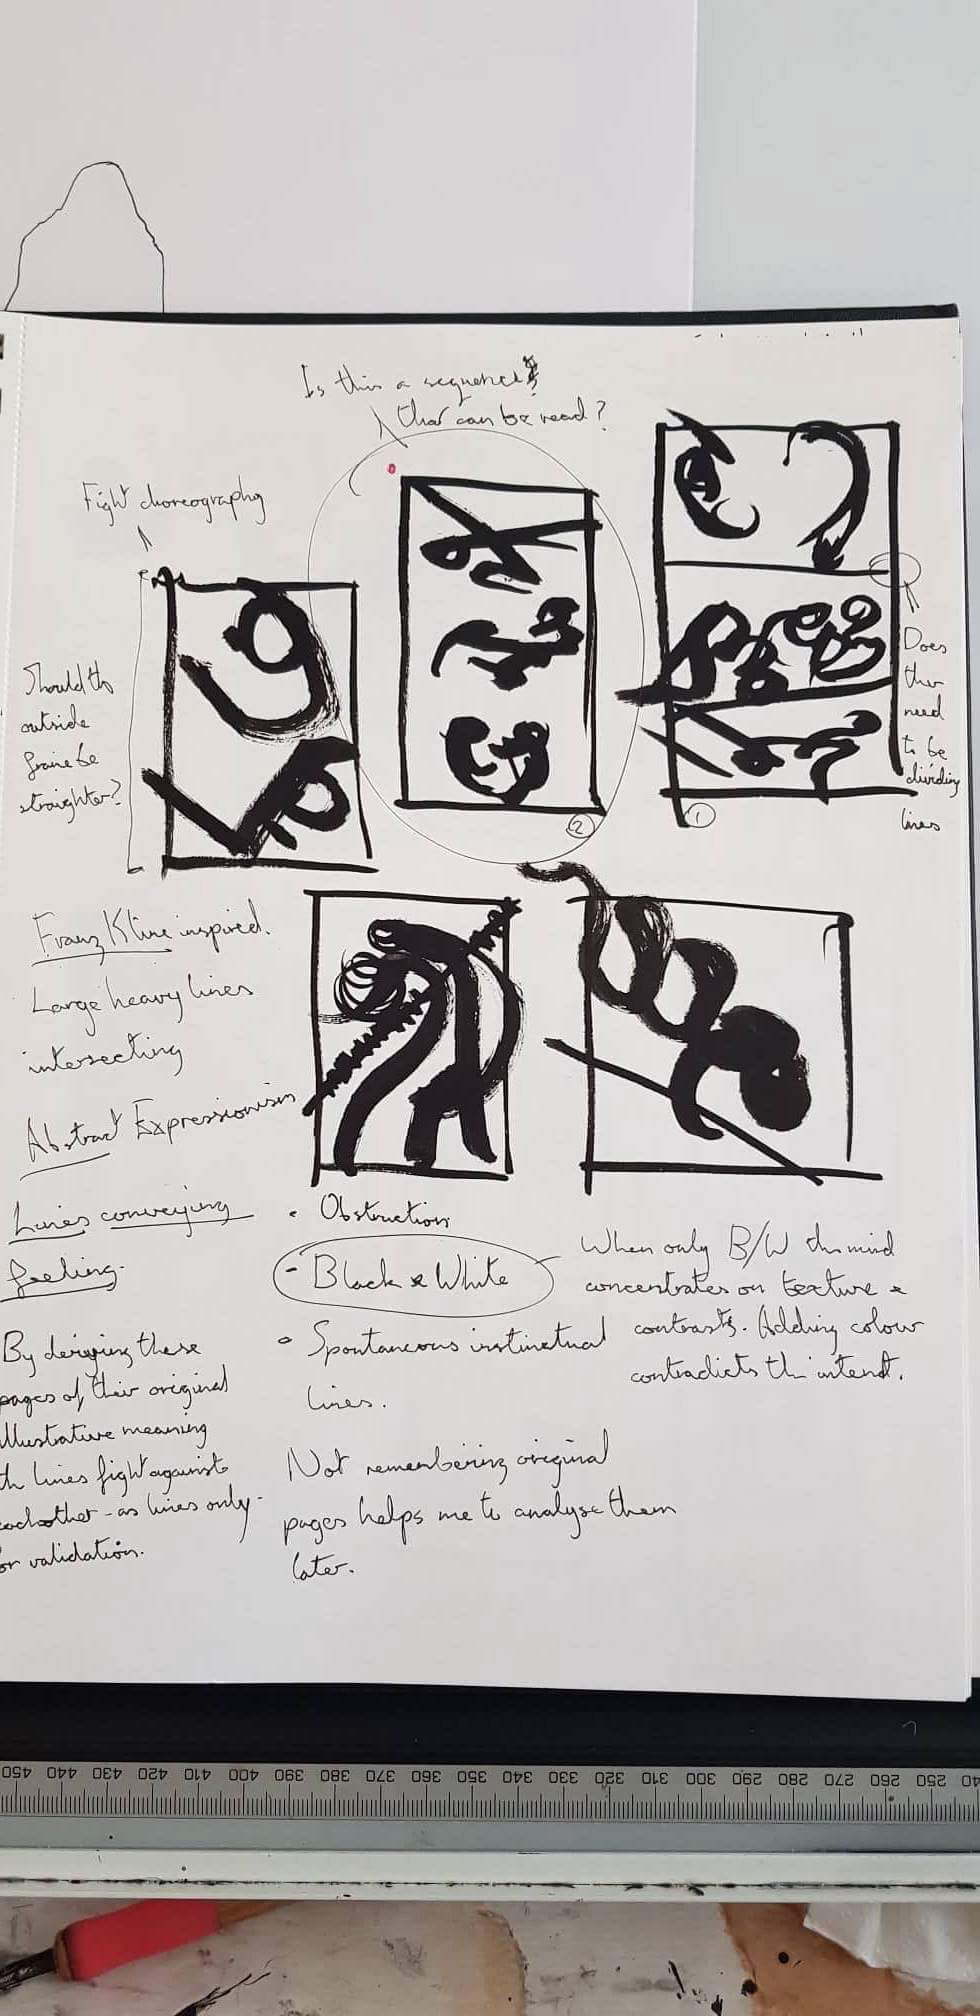 Is this a sequence?
that can be read?
Fight choreography
Should the
outside
frame be
straighter?
Does
ther
need
to be
dividing
lines
2
1
Franz Kline inspired.
Large heavy lines
intersecting
Abstract Expressionism
Lines conveying
feeling.
By deriving these
pages of their original
illustrative meaning
th lines fight against
eachother - as lines only -
for validation.
• Obstruction
- Black & White
• Spontaneous instinctual
lines.
When only B/W the mind
concentrates on texture &
contrasts. Adding colour
contradicts the intent.
Not remembering original
pages helps me to analyse them
later.
450 440 430 420 410 400 390 380 370 360 350 340 330 320 310 300 290 280 270 260 250